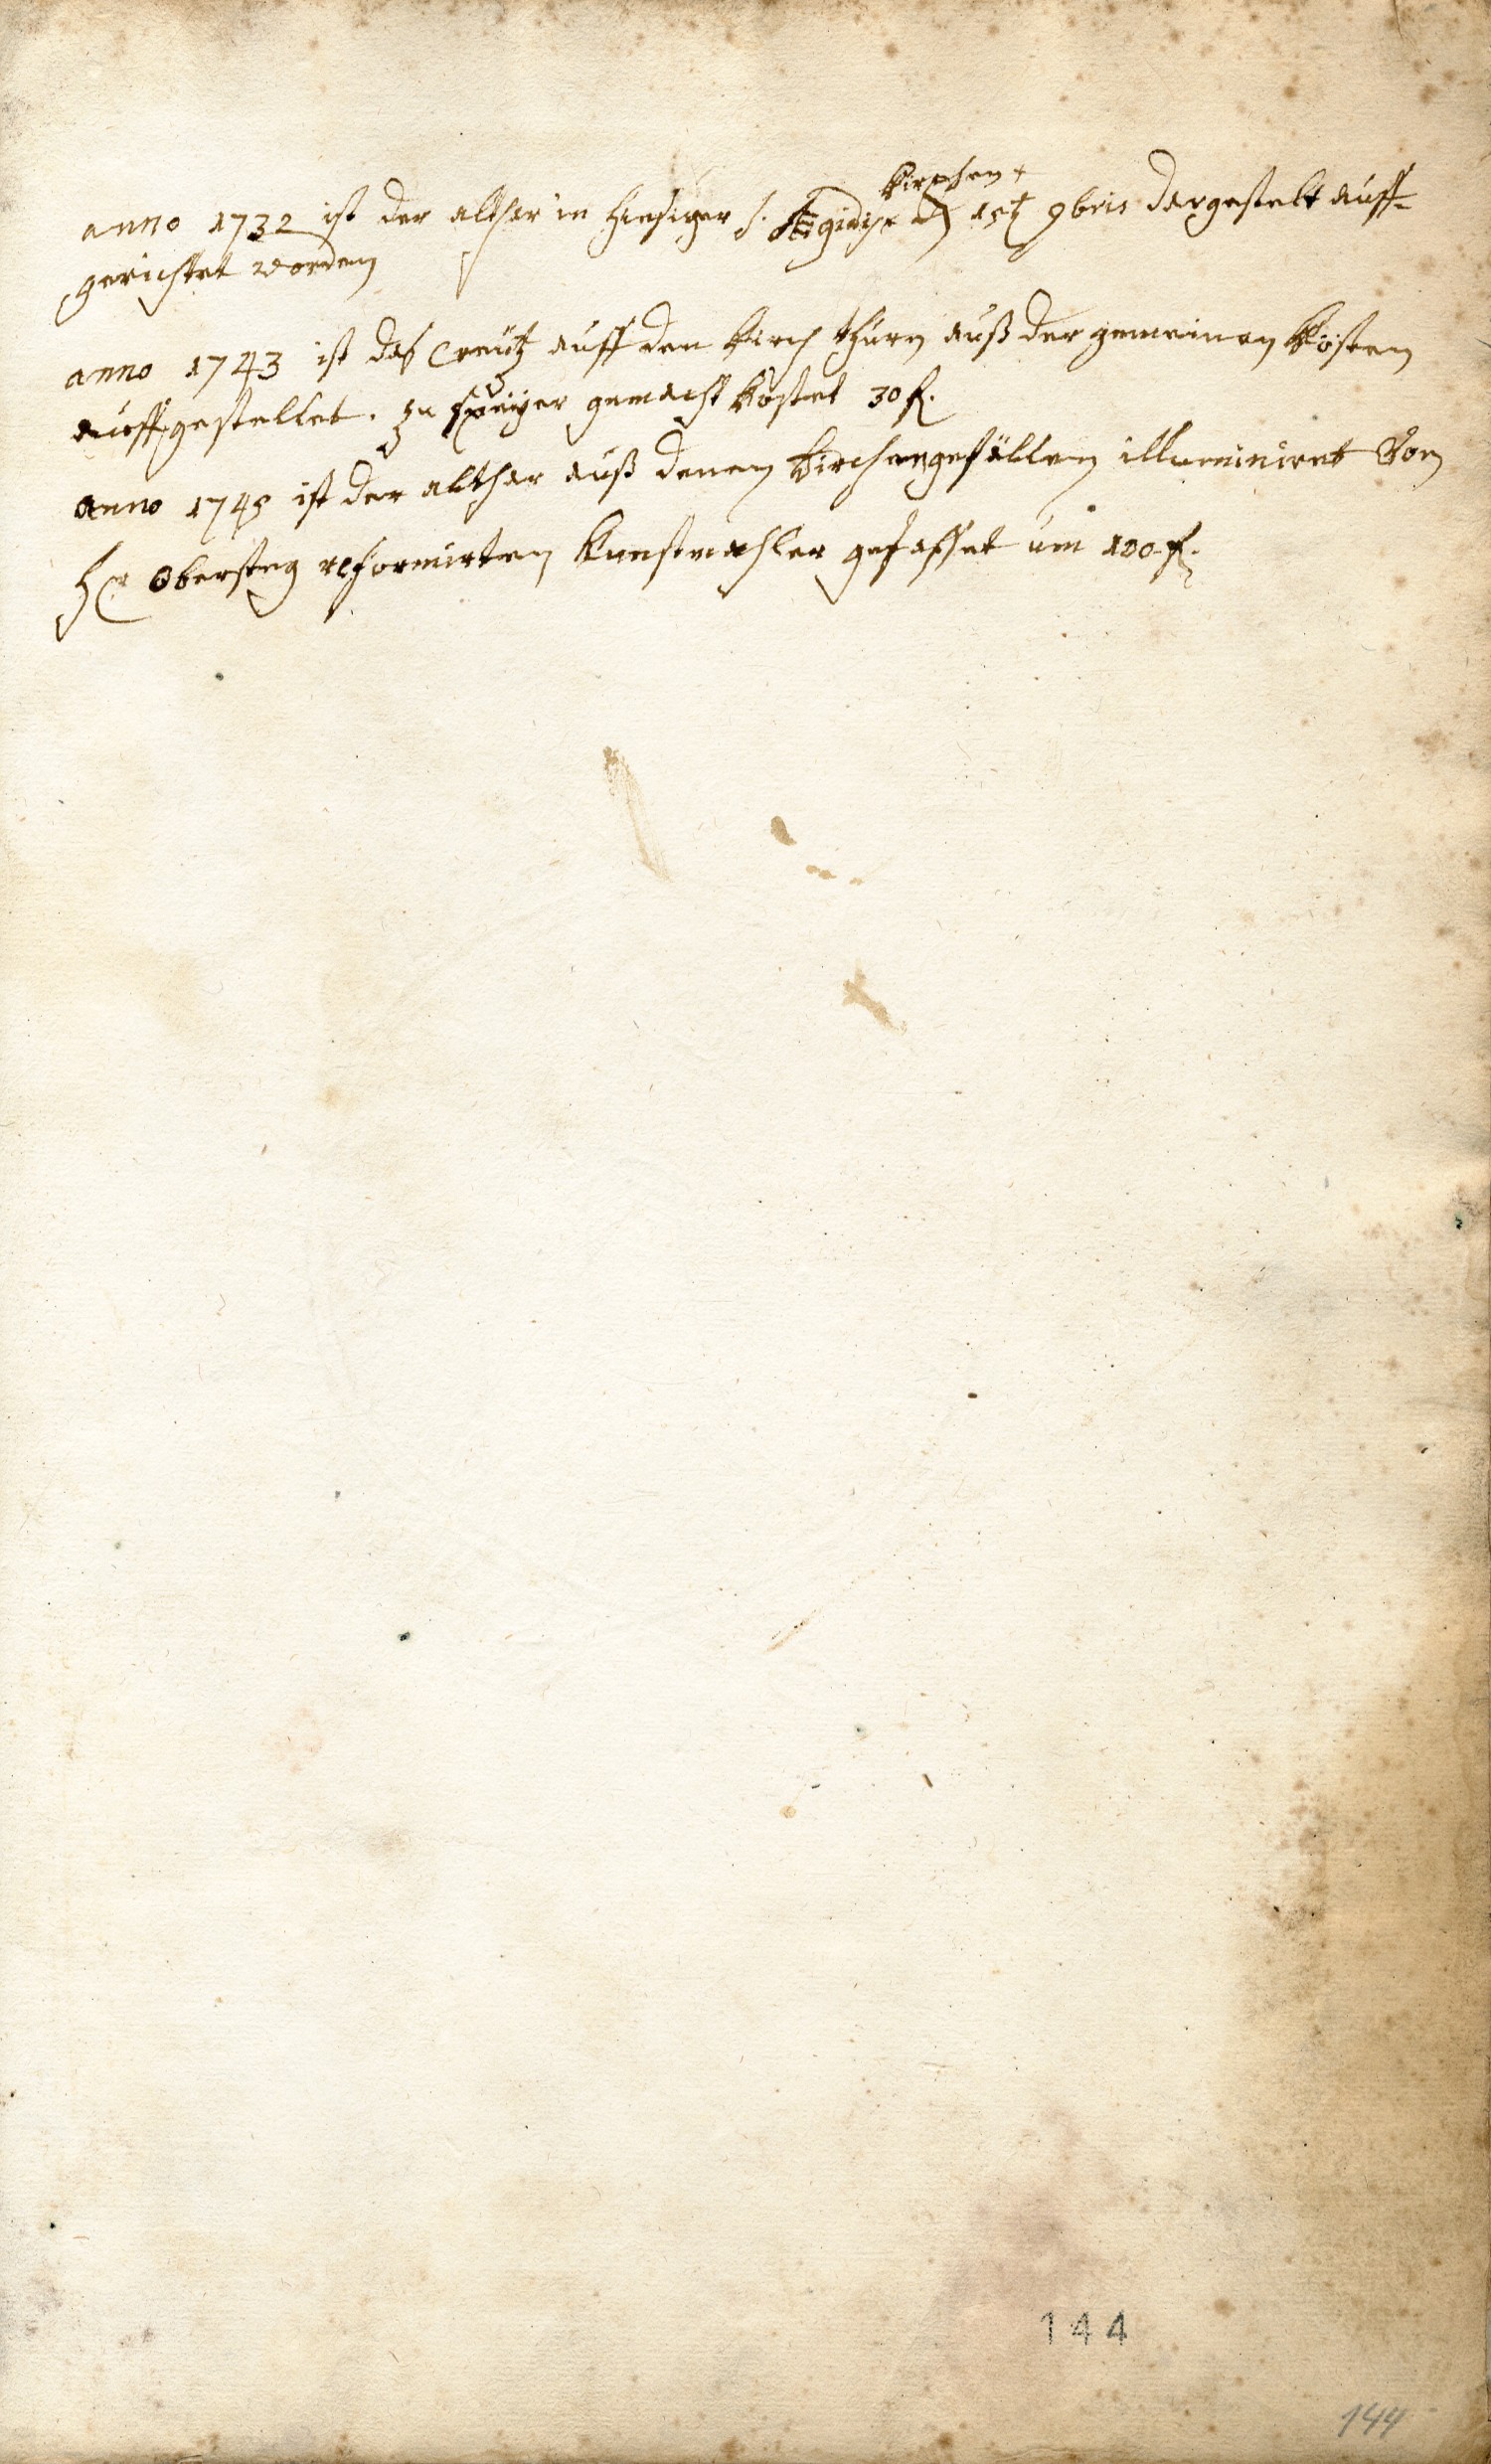 Kirchen +
anno 1732 ist der althar in hiesiger S. Ægidij 15t 9bris dargestelt auff=
gerichtet worden
anno 1743 ist das Creütz auff den Kirch thurn auß der gemeinen Kösten
auffgestellet. zu speÿer gemacht kostet 30 f.
anno 1748 ist der althar auß denen Kirchengefällen illuminiret Von
Hr Obersteg reformirten Kunstmahler gefasset um 100 f.
144
144